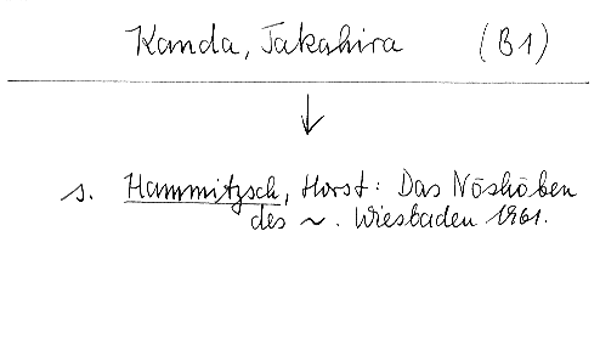 Kanda, Takahira (B1)
↓
s. Hammitzsch, Horst: Das Nōshōben
des ~. Wiesbaden 1961.